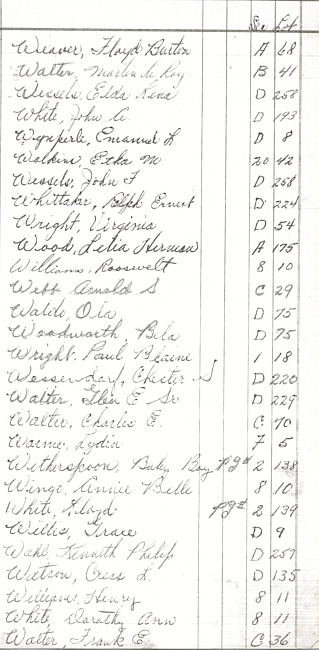 Sec Lot
Weaver, Floyd Burton A 68
Walter, Martin Le Roy B 41
Wessels, Elda Rena D 258
White, John A. D 193
Wynperle, Emanuel L D 8
Watkins, Etha M 20 42
Wessels, John F D 258
Whittaker, Ralph Ernest D 224
Wright, Virginia D 54
Wood, Lelia Herman A 175
Williams, Roosevelt 8 10
Webb Arnold S C 29
Waldo, Ola D 75
Woodworth, Bela D 75
Wright, Paul Blaine 1 18
Wessendorf, Chester S D 220
Walter, Glen E Sr D 229
Walter, Charles E. C 70
Warne, Lydia F 5
Witherspoon, Baby Boy pg# 2 138
Wingo, Annie Belle 8 10
White, Floyd pg# 2 139
Willis, Grace D 9
Wahl, Kenneth Philip D 257
Watson, Cress L. D 135
Williams, Henry 8 11
White, Dorothy Ann 8 11
Walter, Frank E C 36